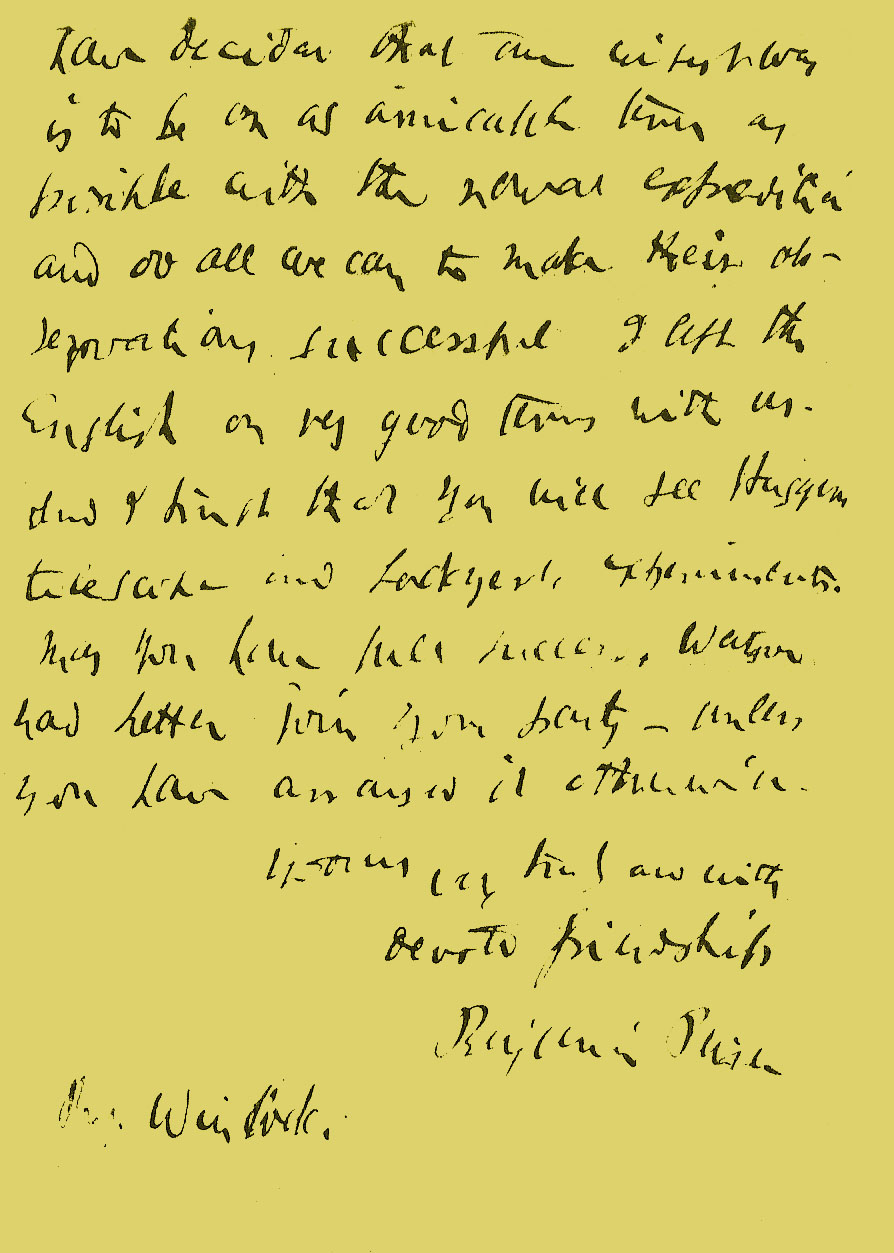 have decided that our wisest way
is to be on as amicable terms as
possible with the naval expedition
and do all we can to make their ob-
servations successful I left the
English on very good terms with us.
And I trust that you will see Huggins
telescope and Lockyer's experiments.
May you have full success, Watson
had better join your party – unless
you have arranged it otherwise.
Yours very truly and with
devoted friendship
Benjamin Peirce
Winlock.